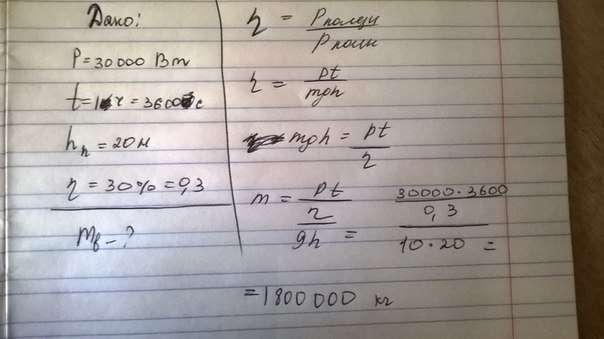 Дано:
P = 30000 Вт
t = 1ч = 3600с
hₙ = 20м
η = 30% = 0,3
mв - ?
η = Pполезн / Pполн
η = pt / mgh
mgh = pt / η
m = pt / η / gh = 30000·3600 / 0,3 / 10·20 =
= 1800000 кг